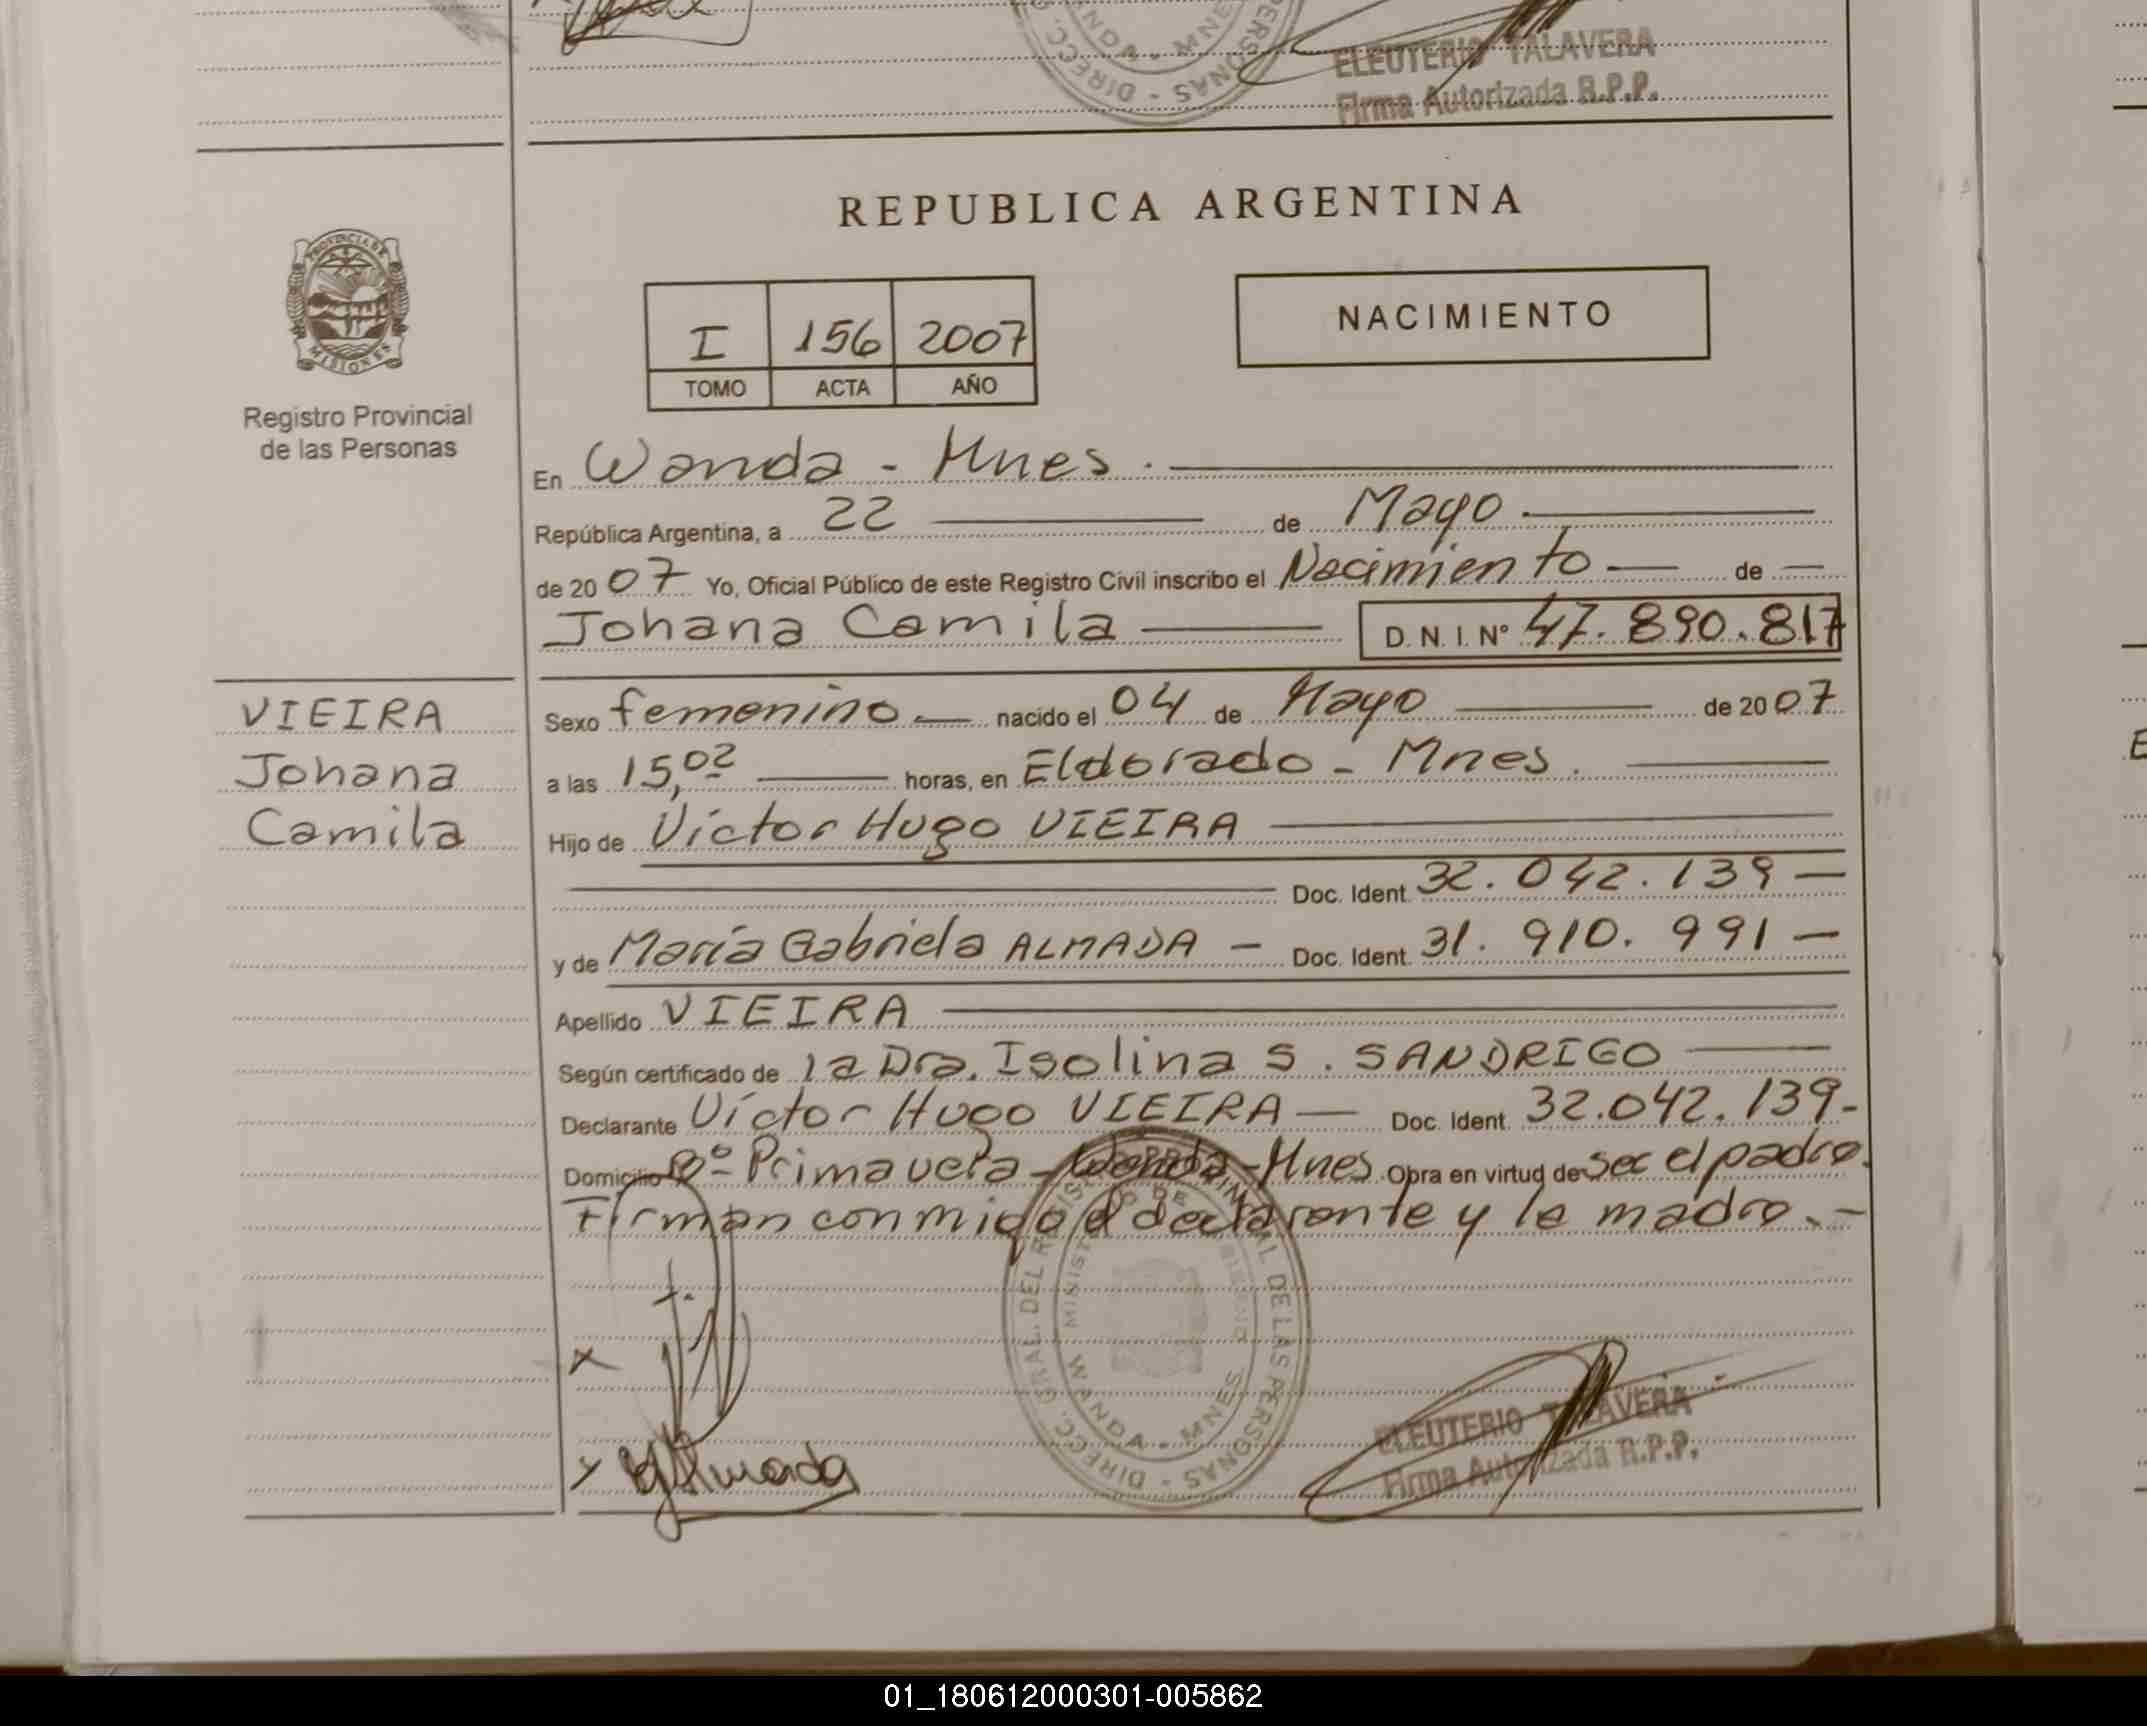 ELEUTERIO TALAVERA
Firma Autorizada R.P.P.
REPUBLICA ARGENTINA
PROVINCIA DE
MISIONES
Registro Provincial
de las Personas
I 156 2007
TOMO ACTA AÑO
NACIMIENTO
En Wanda - Mnes.
República Argentina, a 22 de Mayo
de 2007 Yo, Oficial Público de este Registro Civil inscribo el Nacimiento de
Johana Camila D.N.I. Nº 47.890.817
VIEIRA
Johana
Camila
Sexo femenino nacido el 04 de Mayo de 2007
a las 15,02 horas, en Eldorado - Mnes.
Hijo de Víctor Hugo VIEIRA
Doc. Ident. 32.042.139
y de María Gabriela ALMADA - Doc. Ident. 31.910.991
Apellido VIEIRA
Según certificado de la Dra. Isolina S. SANDRIGO
Declarante Víctor Hugo VIEIRA Doc. Ident. 32.042.139-
Domicilio Bº Primavera - Wanda - Mnes. Obra en virtud de ser el padre.
Firman conmigo el declarante y la madre.-
DIRECC. GRAL. DEL REGISTRO PROVINCIAL DE LAS PERSONAS
WANDA - MNES
ELEUTERIO TALAVERA
Firma Autorizada R.P.P.
01_180612000301-005862